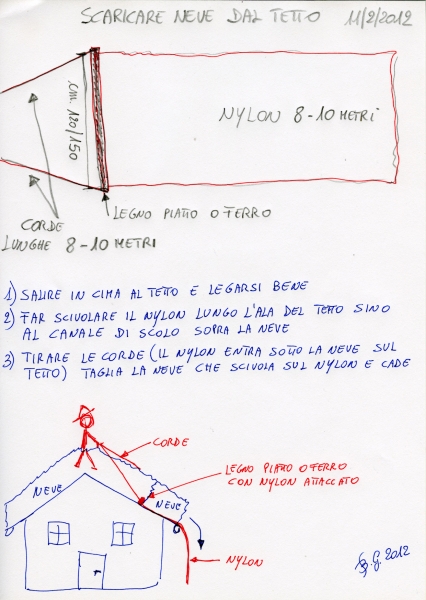 SCARICARE NEVE DAL TETTO 11/2/2012
cm. 120/150
NYLON 8-10 METRI
LEGNO PIATTO O FERRO
CORDE
LUNGHE 8-10 METRI
1) SALIRE IN CIMA AL TETTO E LEGARSI BENE
2) FAR SCIVOLARE IL NYLON LUNGO L'ALA DEL TETTO SINO
AL CANALE DI SCOLO SOPRA LA NEVE
3) TIRARE LE CORDE (IL NYLON ENTRA SOTTO LA NEVE SUL
TETTO) TAGLIA LA NEVE CHE SCIVOLA SUL NYLON E CADE
CORDE
LEGNO PIATTO O FERRO
CON NYLON ATTACCATO
NEVE
NEVE
NYLON
G 2012